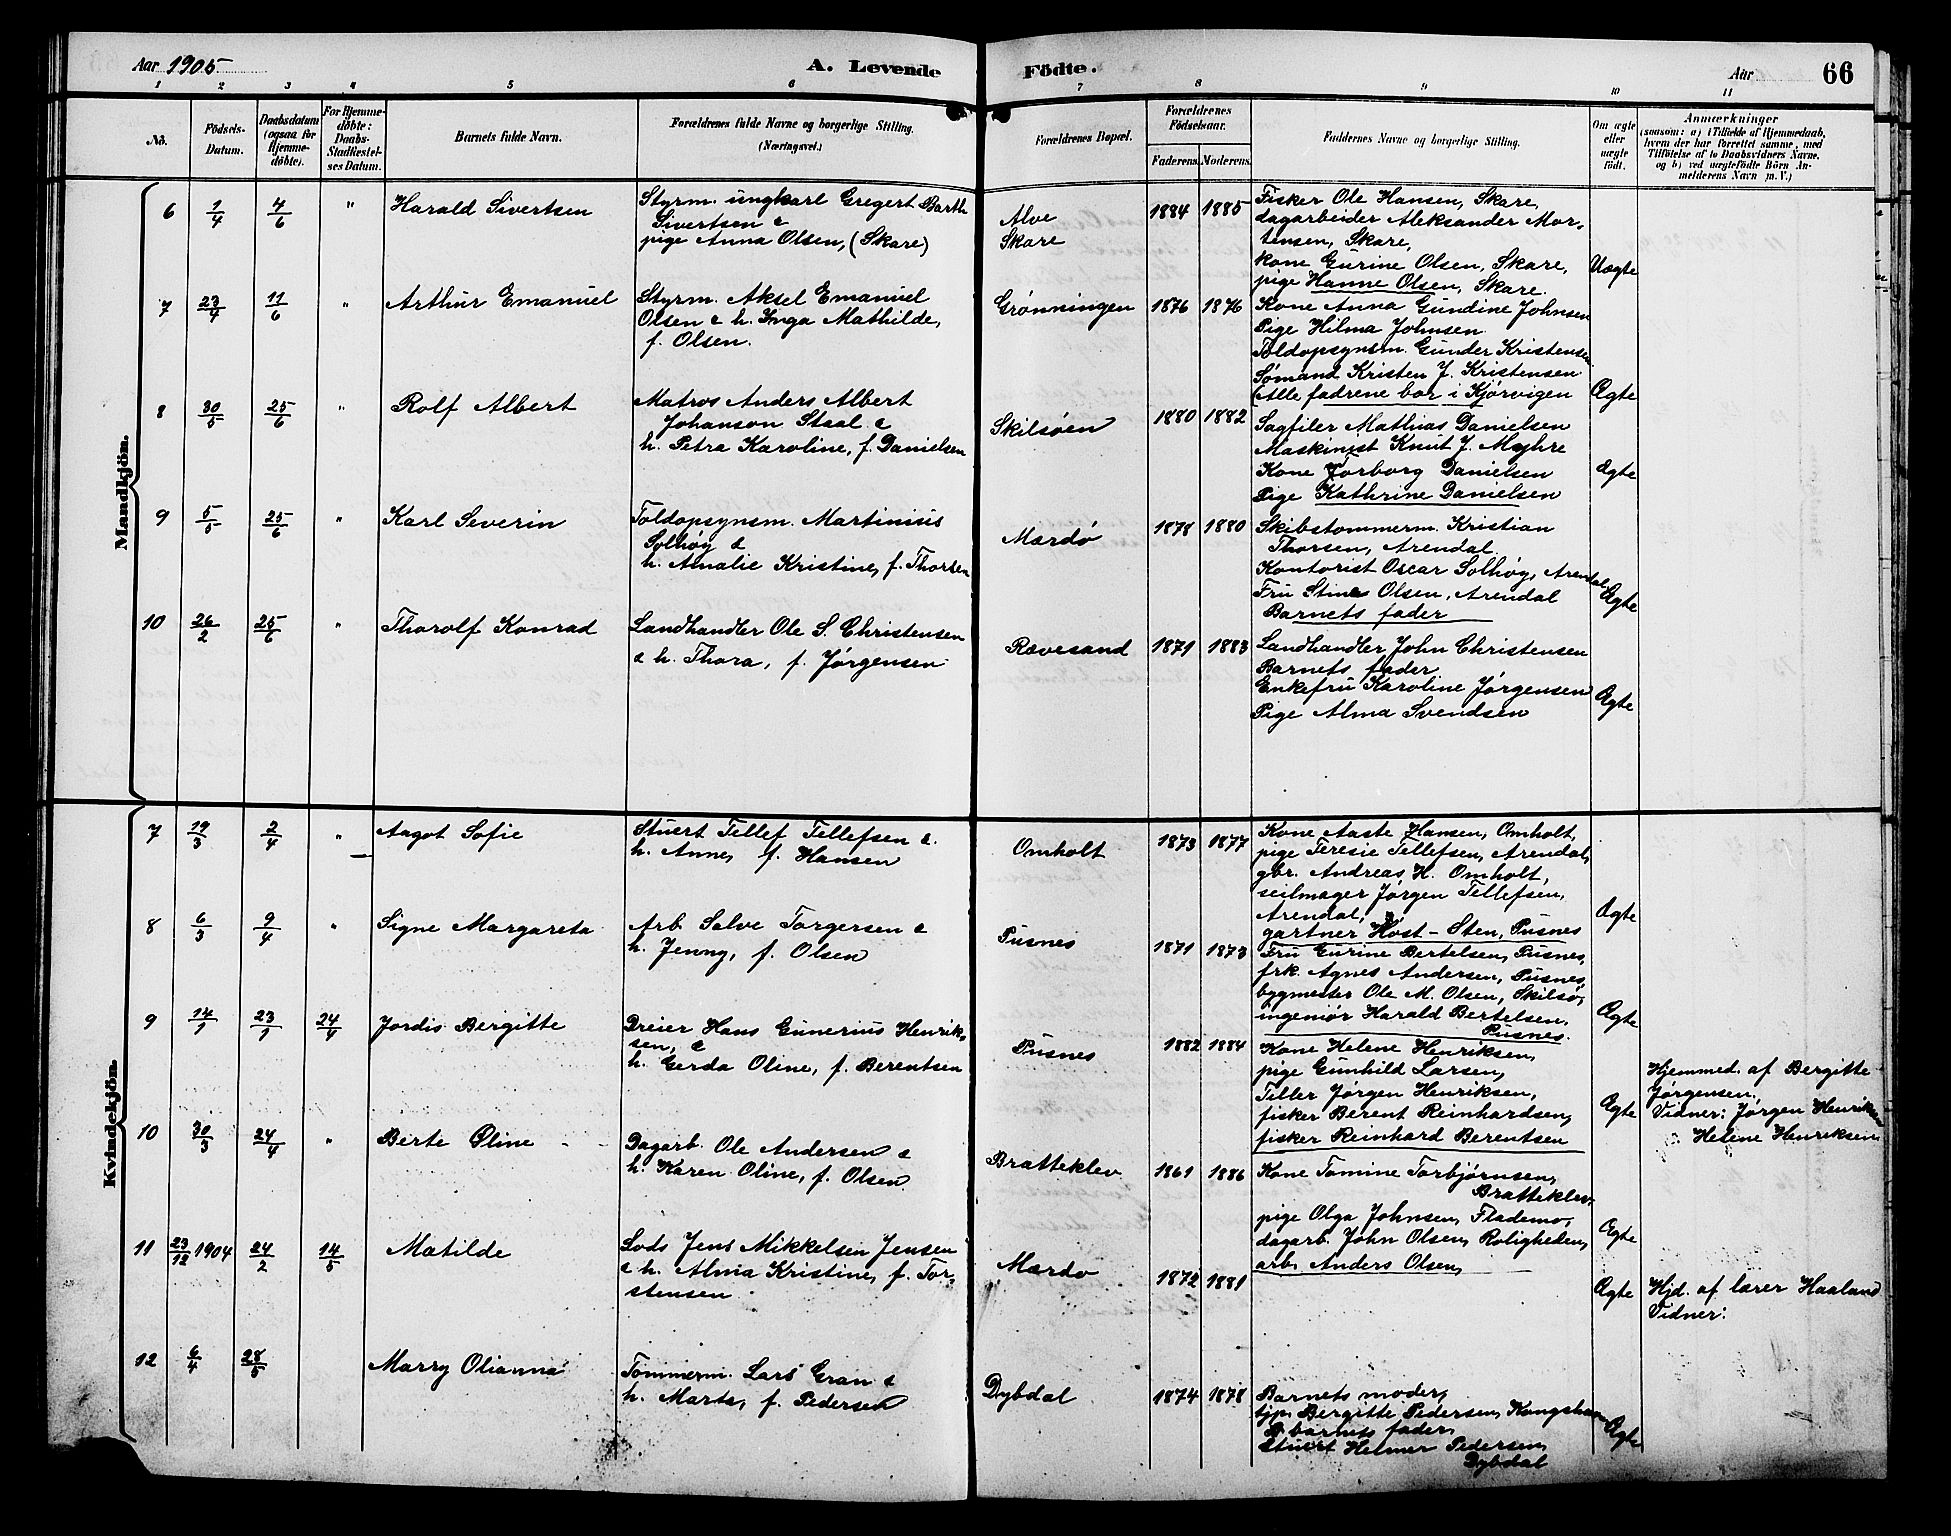 Aar 1905
A. Levende Födte.
Aar
66
1 2 3 4 5 6 7 8 9 10 11
No.
Födsels-
Datum.
Daabsdatum
(ogsaa for
Hjemme-
döbte).
For Hjemme-
döbte:
Daabs-
Stadfæstel-
ses Datum.
Barnets fulde Navn.
Forældrenes fulde Navne og borgerlige Stilling.
(Næringsvei.)
Forældrenes Bopæl.
Forældrenes
Födselsaar.
Faderens. Moderens.
Faddernes Navne og borgerlige Stilling.
Om ægte
eller
uægte
født.
Anmærkninger
(saasom: a) i Tilfælde af Hjemmedaab,
hvem der har forrettet samme, med
Tilföielse af to Daabsvidners Navne,
og b) ved uægtefödte Börn An-
melderens Navn m. V.)
Mandkjön.
6 1/4 4/6 " Harald Sivertsen
Styrm. ungkarl Gregert Barth
Sivertsen &
pige Anna Olsen, (Skare)
Alve
Skare
1884 1885
Fisker Ole Hansen, Skare,
dagarbeider Aleksander Mor-
tensen, Skare,
kone Gurine Olsen, Skare,
pige Hanne Olsen, Skare.
Uægte
7 23/4 11/6 " Arthur Emanuel
Styrm. Aksel Emanuel
Olsen & h. Inga Mathilde,
f. Olsen.
Grønningen
1876 1876
Kone Anna Gundine Johnsen
Pige Hilma Johnsen
Toldopsynsm. Gunder Kristensen
Sømand Kristen J. Kristensen
(Alle fadrene bor i Kjørvigen
Ægte
8 30/5 25/6 " Rolf Albert
Matros Anders Albert
Johanson Staal &
h. Petra Karoline, f. Danielsen
Skilsøen
1880 1882
Sagfiler Mathias Danielsen
Maskinist Knut J. Myhre
Kone Jorborg Danielsen
Pige Kathrine Danielsen
Ægte
9 5/5 25/6 " Karl Severin
Toldopsynsm. Martinius
Solhøy &
h. Amalie Kristine, f. Thorsen
Mærdø
1878 1880
Skibstømmerm. Kristian
Thorsen, Arendal.
Kontorist Oscar Solhøy, Arendal,
Fru Stine Olsen, Arendal
Barnets fader
Ægte
10 26/2 25/6 " Thorolf Konrad
Landhandler Ole S. Christensen
& h. Thora, f. Jørgensen
Rævesand
1871 1883
Landhandler John Christensen
Barnets fader
Enkefru Karoline Jørgensen
Pige Alma Svendsen
Ægte
Kvindekjön.
7 19/3 2/4 " Aagot Sofie
Stuert Tellef Tellefsen &
h. Anne, f. Hansen
Omholt
1873 1877
Kone Aaste Hansen, Omholt,
pige Teresie Tellefsen, Arendal,
gbr. Andreas H. Omholt,
seilmager Jørgen Tellefsen,
Arendal,
gartner Høst-Sten, Pusnes
Ægte
8 6/3 9/4 " Signe Margareta
Arb. Salve Torgersen &
h. Jenny, f. Olsen
Pusnes
1871 1873
Fru Gurine Bertelsen, Pusnes,
frk. Agnes Andersen, Pusnes,
bygmester Ole M. Olsen, Skilsø,
ingeniør Harald Bertelsen,
Pusnes.
Ægte
9 14/1 23/1 24/4 Jordis Bergitte
Dreier Hans Gunerius Henrik-
sen, &
h. Gerda Oline, f. Berentsen
Pusnes
1882 1884
Kone Helene Henriksen,
pige Gunhild Larsen,
Tiller Jørgen Henriksen,
fisker Berent Reinhardsen,
fisker Reinhard Berentsen
Ægte
Hjemmed. af Bergitte
Jørgensen,
Vidner: Jørgen Henriksen
Helene Henriksen
10 30/3 24/4 " Berte Oline
Dagarb. Ole Andersen &
h. Karen Oline, f. Olsen
Bratteklev
1861 1886
Kone Tomine Torbjørnsen,
Bratteklev,
pige Olga Johnsen, Flademo,
dagarb. John Olsen, Roligheden,
arb. Anders Olsen,
Ægte
11 23/12 1904 24/2 14/5 Matilde
Lods Jens Mikkelsen Jensen
& h. Alma Kristine, f. Tor-
stensen
Mærdø
1872 1881
Ægte
Hjd. af lærer Haaland
Vidner:
12 6/4 28/5 Marry Olianna
Tømmerm. Lars Gran &
h. Marte, f. Pedersen
Dybdal
1874 1878
Barnets moder,
tjp. Bergitte Pedersen, Kongshavn
barnets fader,
Stuert Helmer Pedersen,
Dybdal
Ægte